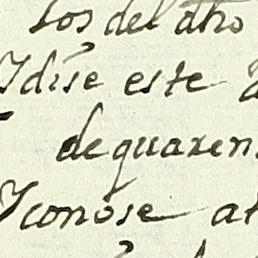 los del dho
Idise este
de quaren
Iconose al